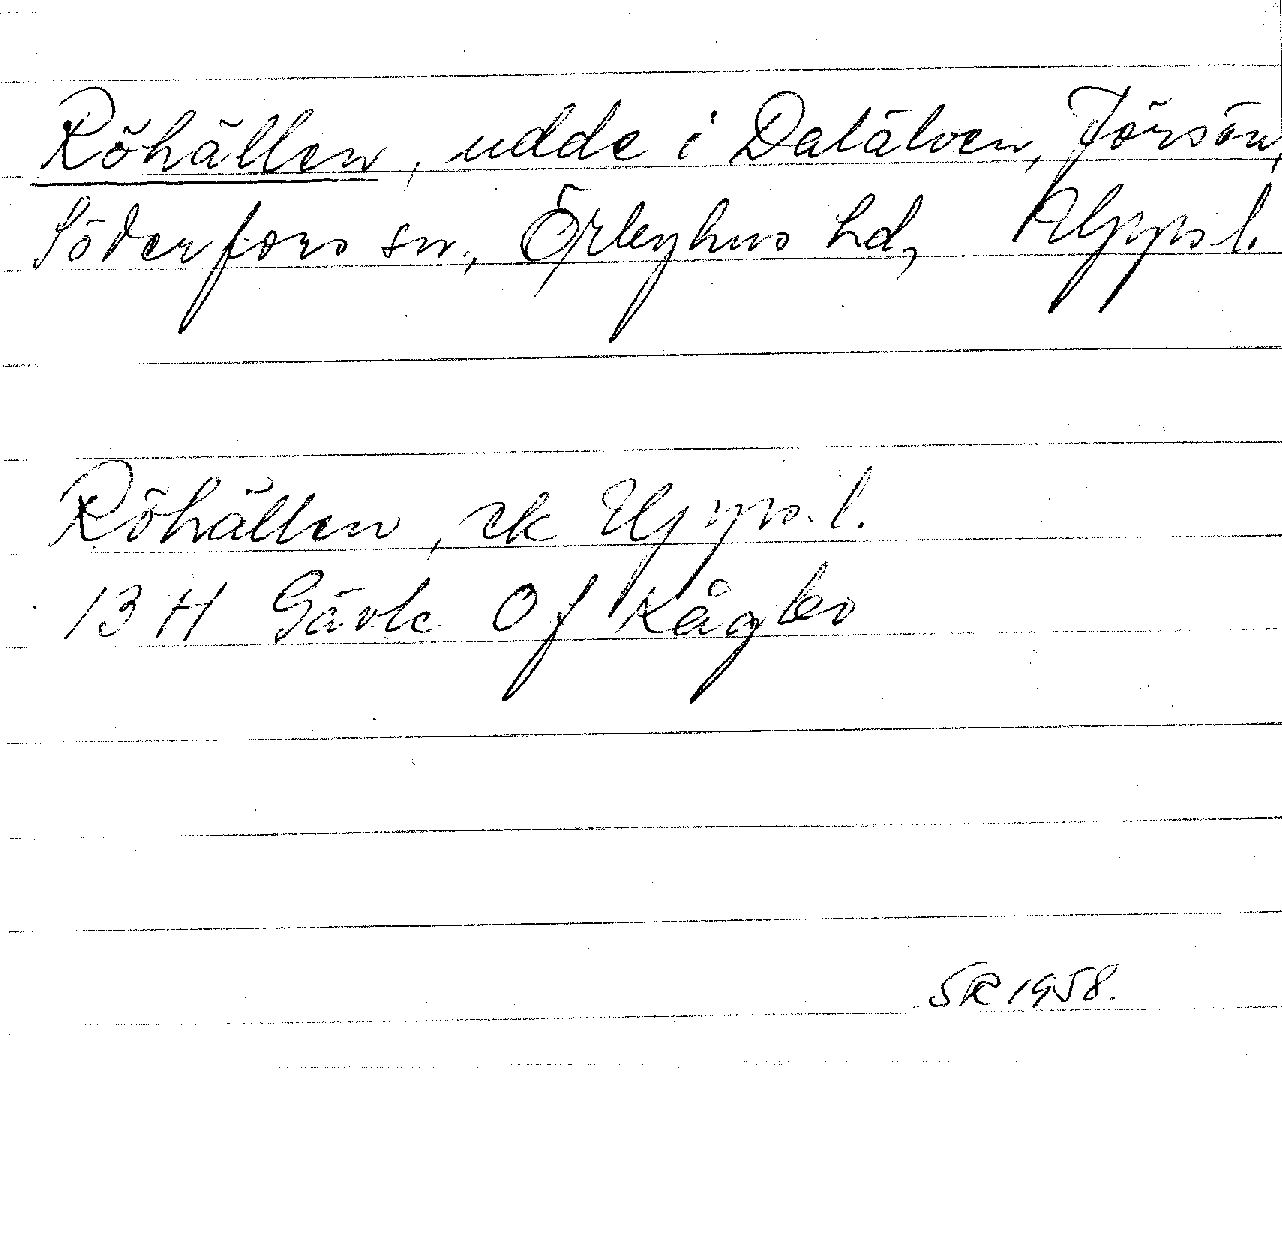 Röhällen, udde i Dalälven, Jörsön,
Söderfors sn., Örbyhus hd, Upps. l.
Röhällen, ek Upps. l.
13 H Gävle 0 f Kågbo
SR 1958.